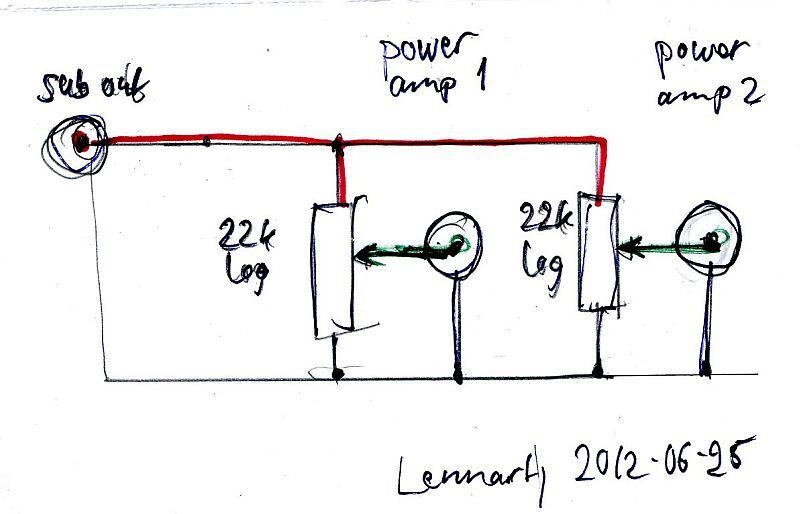 sub out
power
amp 1
power
amp 2
22k
log
22k
log
Lennart, 2012-06-25